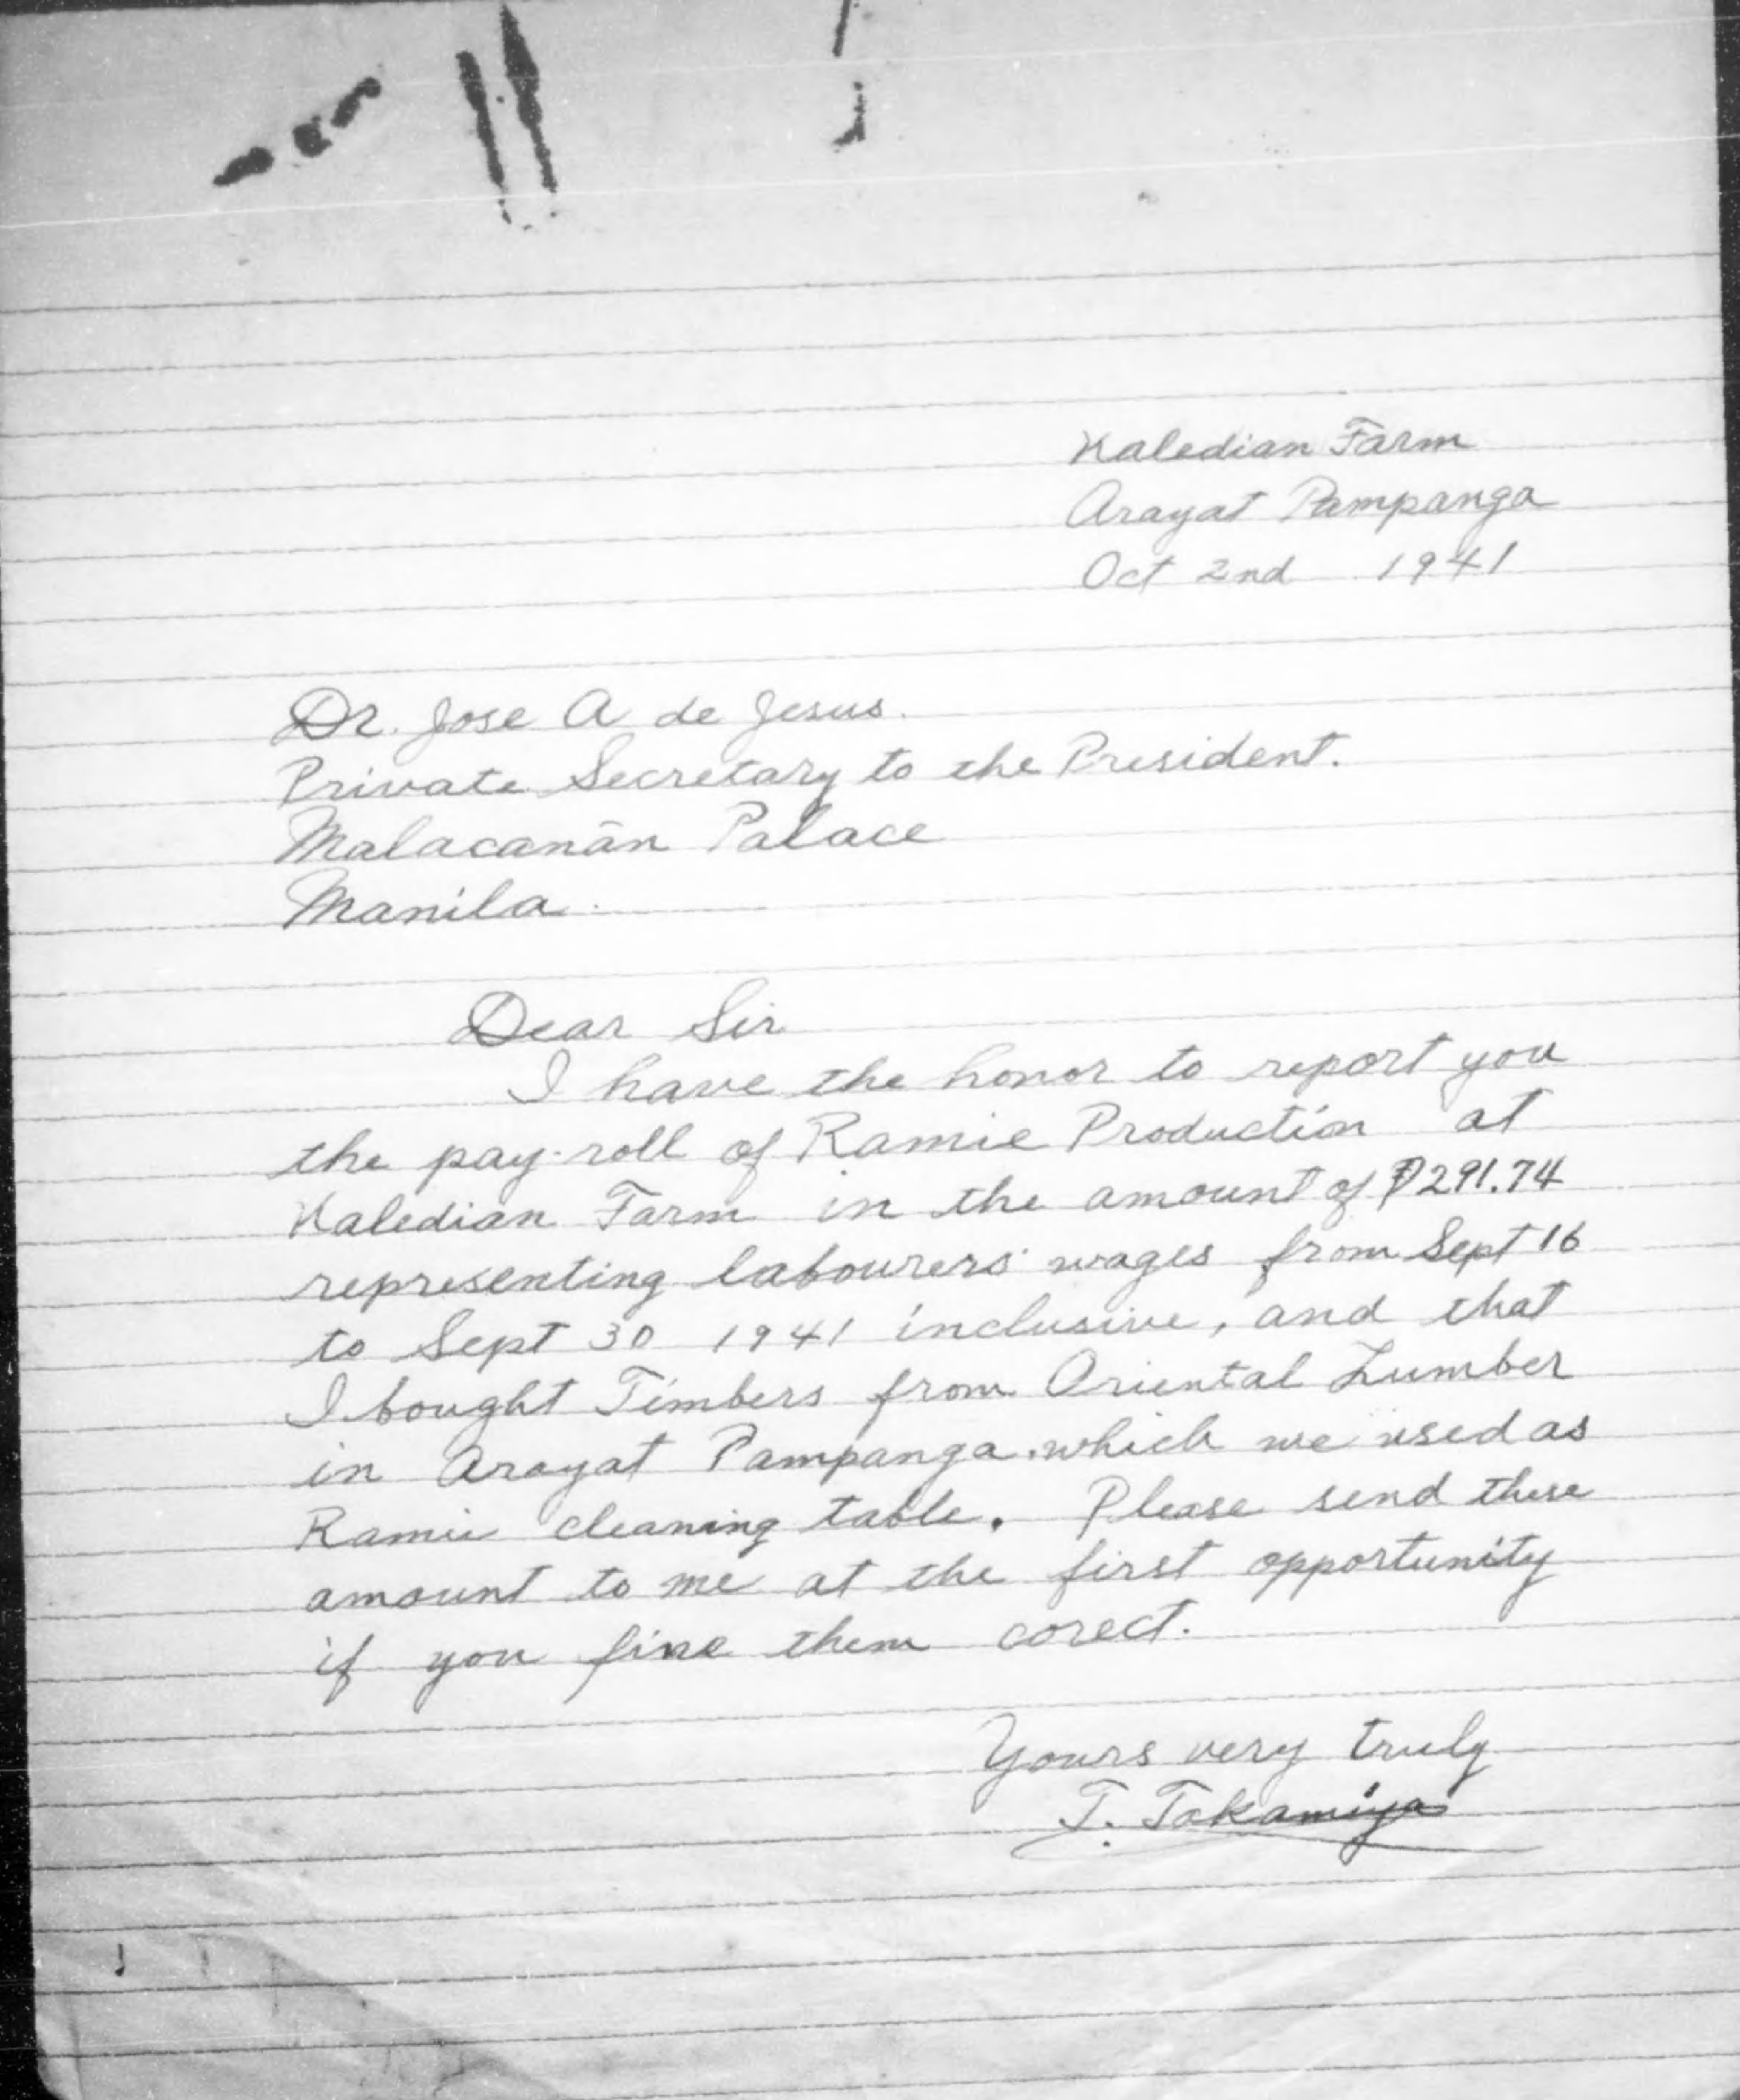 Kaledian Farm
Arayat Pampanga
Oct 2nd 1941
Dr. Jose A de Jesus.
Private Secretary to the President.
Malacanãn Palace
Manila.
Dear Sir
I have the honor to report you
the pay-roll of Ramie Production at
Kaledian Farm in the amount of ₱291.74
representing labourers' wages from Sept 16
to Sept 30 1941 inclusive, and that
I bought Timbers from Oriental Lumber
in Arayat Pampanga. which we used as
Ramie cleaning table. Please send these
amount to me at the first opportunity
if you fine them corect.
Yours very truly
T. Takamiya